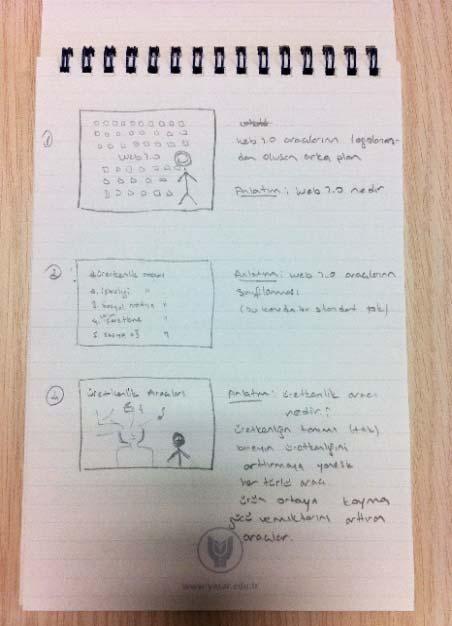 1
Web 2.0 araçlarının logoların-
dan oluşan arka plan
Web 2.0
Anlatım: Web 2.0 nedir
2
1. üretkenlik aracı
2. işbirliği "
3. sosyal medya "
4. "
5. "
Anlatım: web 2.0 araçlarının
sınıflanması
(bu konuda bir standart yok)
üretkenlik Araçları
Anlatım: üretkenlik aracı
nedir?
üretkenliğin tanımı (tdk)
bireyin üretkenliğini
arttırmaya yönelik
her türlü araç.
ürün ortaya koyma
gücü ve miktarını arttıran
araçlar.
www.yasar.edu.tr